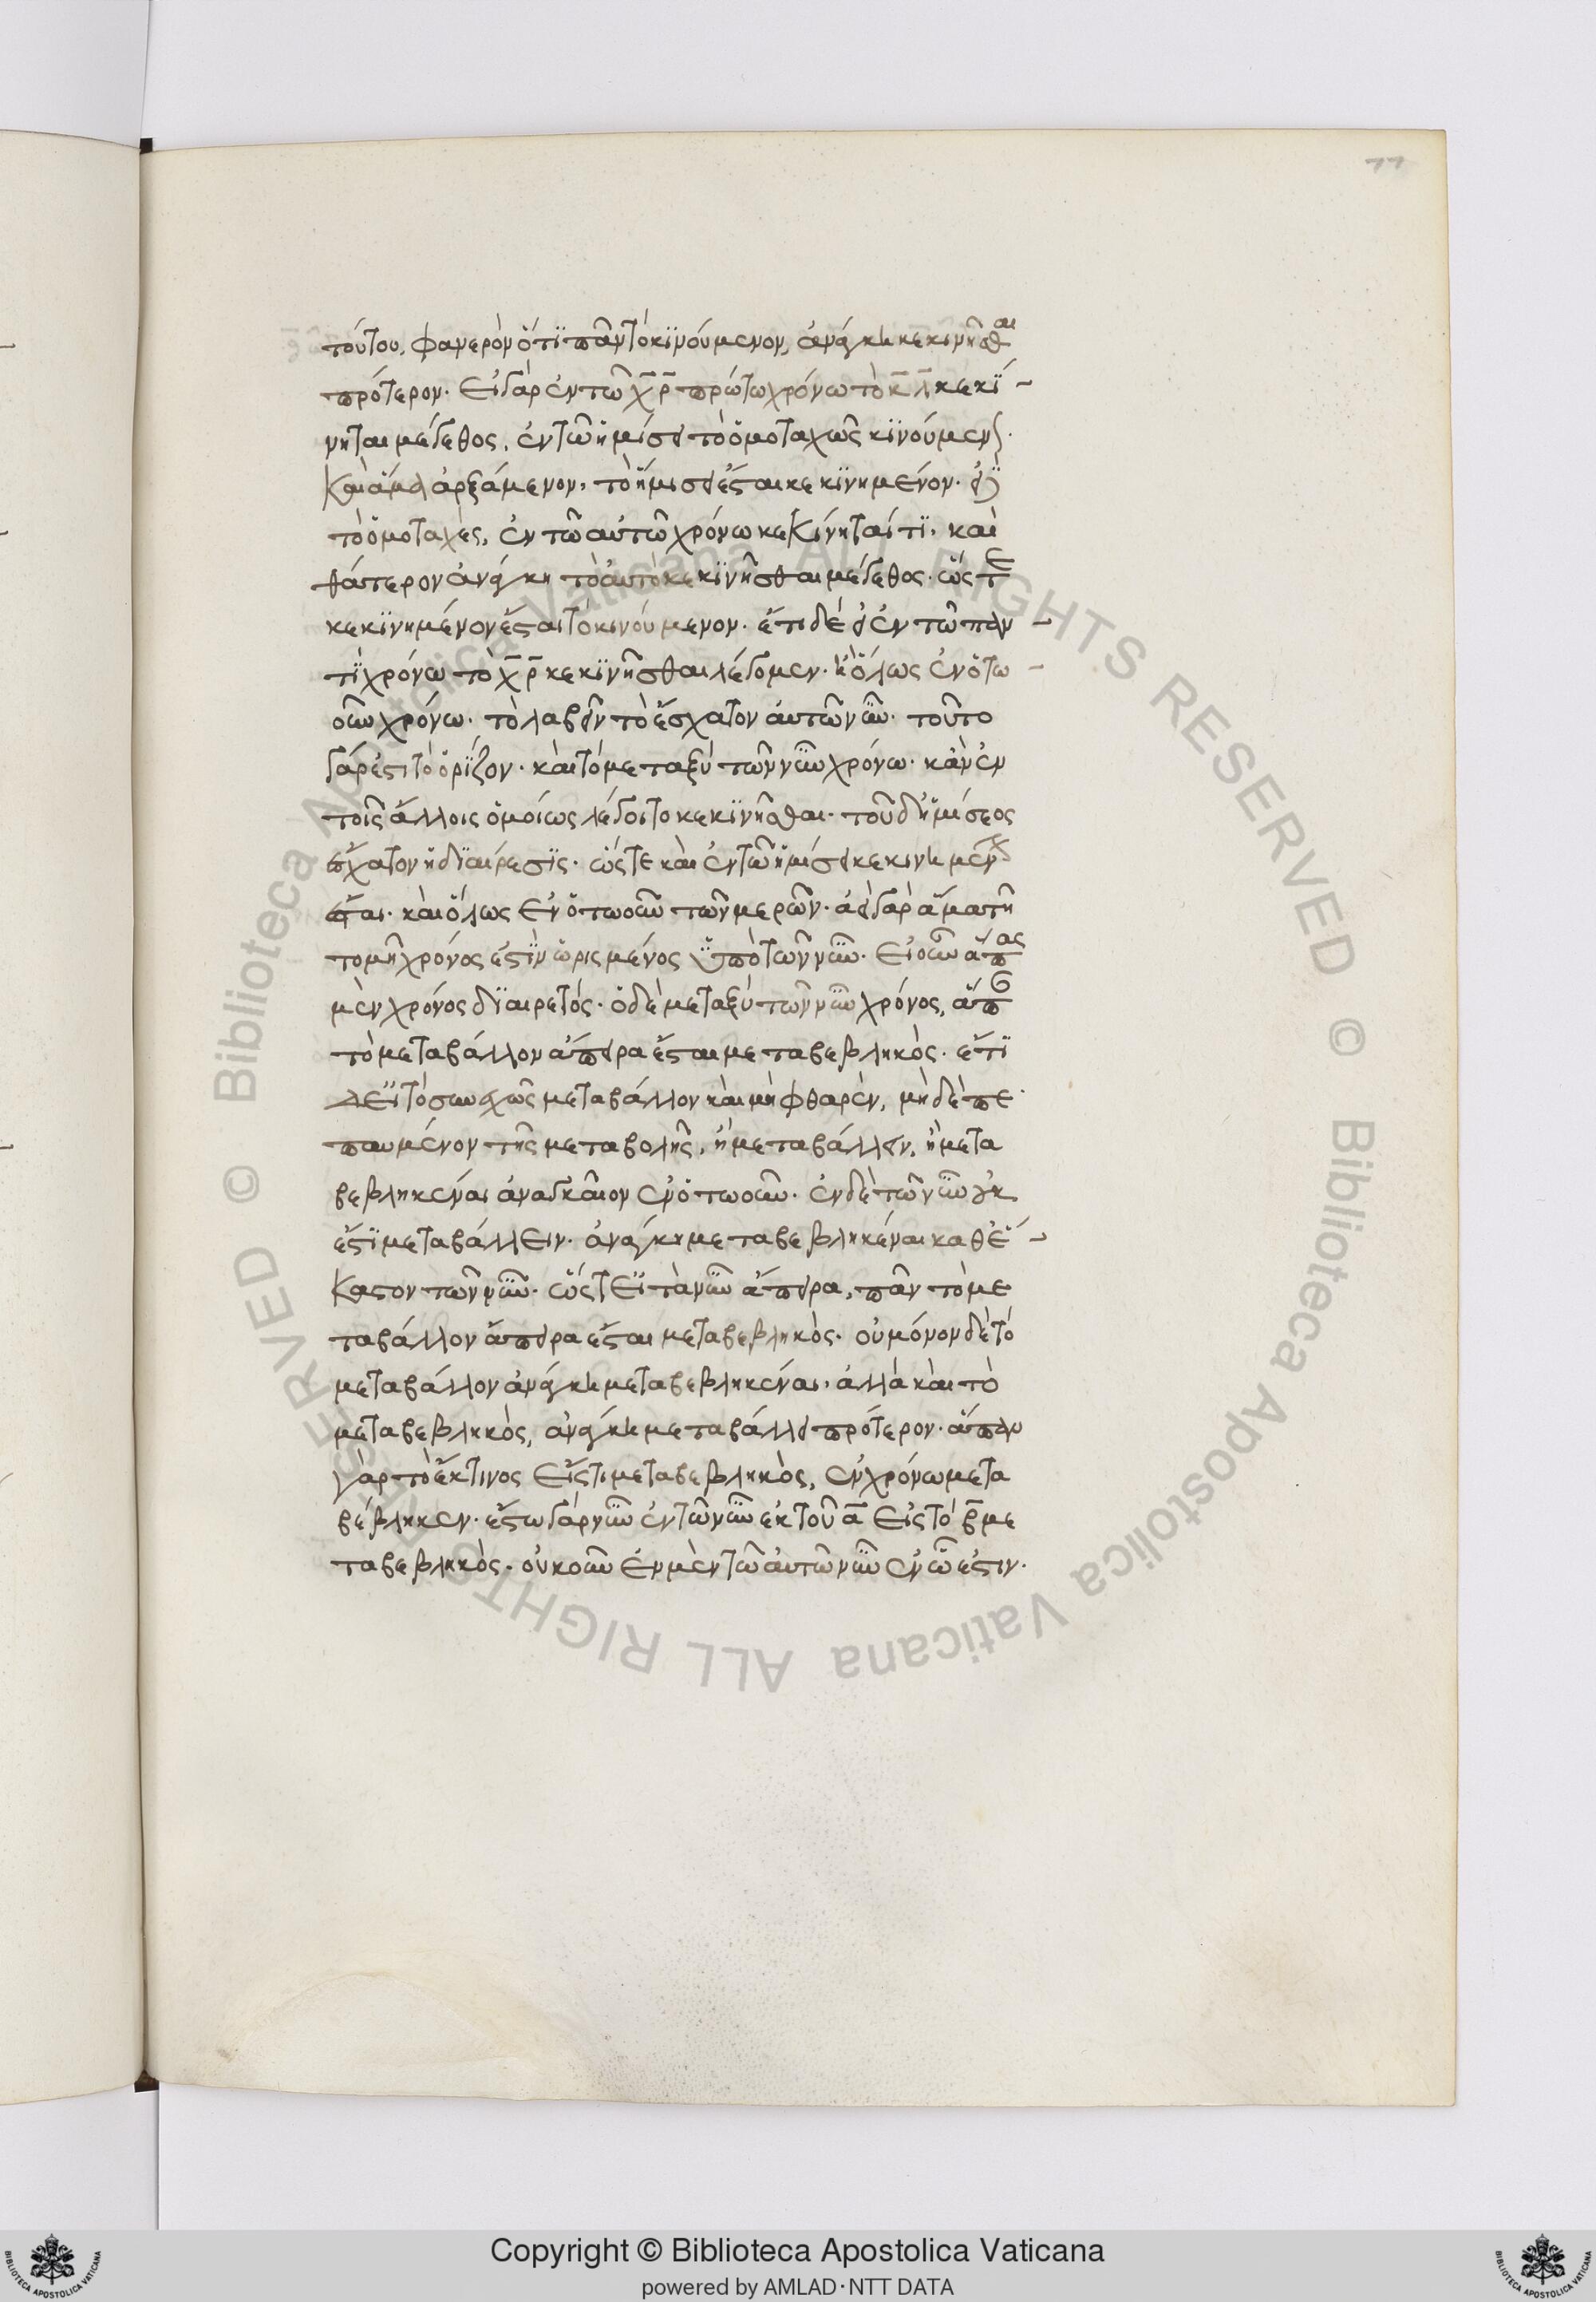 77
τούτου, φανερὸν ὅτϊ πᾶν τὸ κϊνούμενον, ἀνάγκη κεκινῆσθαι
πρότερον. Εἰ γὰρ ἐν τῶ χρ πρώτω χρόνω τὸ κλ κεκί
νηται μέγεθος, ἐν τῶ ἡμίσει τὸ ὁμοταχῶς κϊνούμεν
Καὶ ἅμα ἀρξάμενον, τὸ ἥμισει ἔσται κεκϊνημένον. εἰ
τὸ ὁμοταχὲς, ἐν τῶ αὐτῶ χρόνω κεκίνηταί τϊ, καὶ
θάτερον ἀνάγκη τὸ αὐτὸ κεκϊνῆσθαι μέγεθος. ὥςτε
κεκϊνημένον ἔσται τὸ κινούμενον. ἔτι δὲ εἰ ἐν τῶ παν
τὶ χρόνω τὸ χρ κεκϊνῆσθαι λέγομεν. ἢ ὅλως ἐν ὅτω
οῦν χρόνω. τὸ λαβεῖν τὸ ἔσχατον αὐτῶν νῦν. τοῦτο
γάρ ἐστι τὸ ὁρίζον. καὶ τὸ μεταξὺ τῶν νῦν χρόνω. κἂν ἐν
τοῖς ἄλλοις ὁμοίως λέγοιτο κεκϊνῆσθαι. τοῦ δ' ἡμίσεος
ἔσχατον ἡ δϊαίρεσϊς. ὥςτε καὶ ἐν τῶ ἡμίσει κεκινημέν
ἔσται. καὶ ὅλως ἐν ὁτωοῦν τῶν μερῶν. ἀεὶ γὰρ ἅμα τῆ
τομῆ χρόνος ἐστϊν ὡρισμένος ὑπὸ τῶν νῦν. Εἰ οῦν ἅπας
μὲν χρόνος δϊαιρετός. ὁ δὲ μεταξὺ τῶν νῦν χρόνος, ἅπ
τὸ μεταβάλλον ἄπειρα ἔσται μεταβεβληκὸς. ἔτϊ
δ' εἰ τὸ συνεχῶς μεταβάλλον καὶ μὴ φθαρὲν, μὴ δὲ πε
παυμένον τῆς μεταβολῆς, ἢ μεταβάλλειν, ἢ μετα
βεβληκέναι ἀναγκαῖον ἐν ὁτωοῦν. ἐν δὲ τῶ νῦν οὐκ
ἔστϊ μεταβάλλειν. ἀνάγκη μεταβεβληκέναι καθ' ἕ
καστον τῶν νῦν. ὥςτ' εἰ τὰ νῦν ἄπειρα, πᾶν τὸ με
ταβάλλον ἄπειρα ἔσται μεταβεβληκὸς. οὐ μόνον δὲ τὸ
μεταβάλλον ἀνάγκη μεταβεβληκέναι, ἀλλὰ καὶ τὸ
μεταβεβληκὸς, ἀνάγκη μεταβάλλει πρότερον. ἅπαν
γὰρ τὸ ἔκ τινος εἴς τι μεταβεβληκὸς, ἐν χρόνω μετα
βέβληκεν. ἔστω γὰρ νῦν ἐν τῶ νῦν ἐκ τοῦ α εἰς τὸ β με
ταβεβληκὸς. οὐκοῦν ἐν μὲν τῶ αὐτῶ νῦν ἐν ὧ ἐστιν.
Copyright © Biblioteca Apostolica Vaticana
powered by AMLAD·NTT DATA